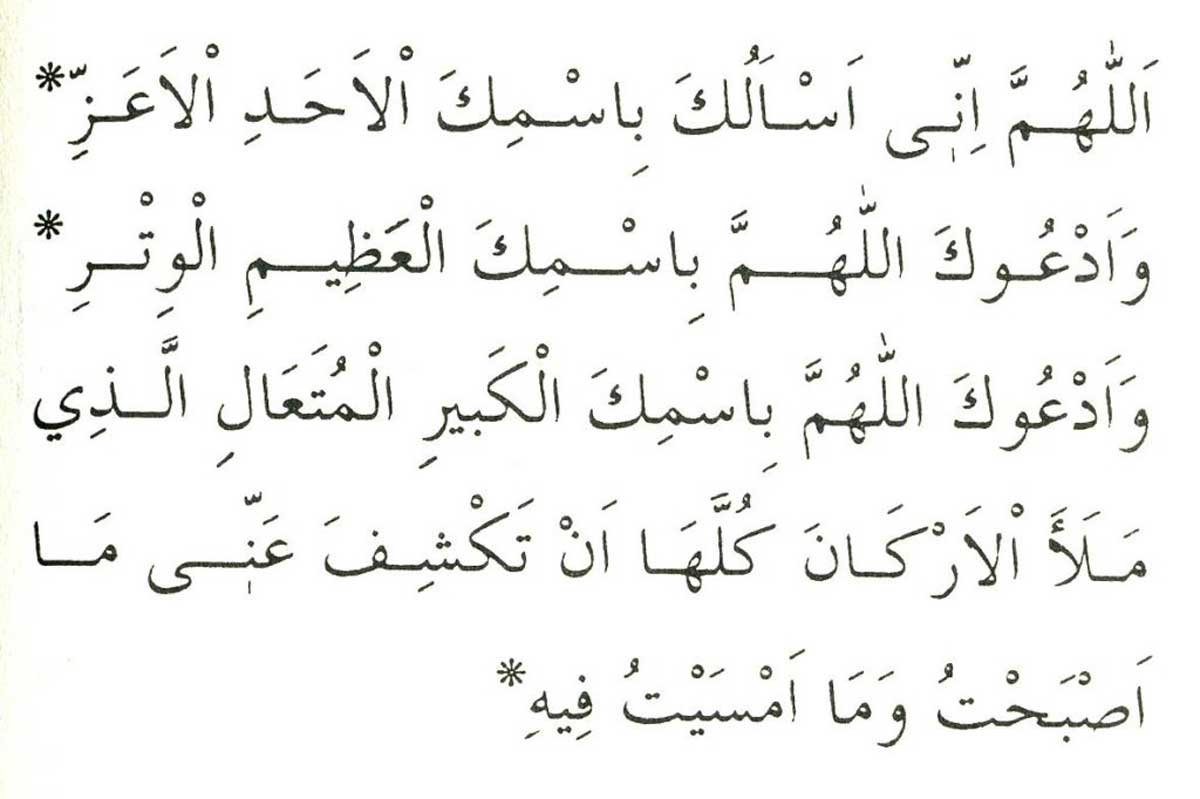 اَللّٰهُمَّ اِنّٖى اَسْاَلُكَ بِاسْمِكَ الْاَحَدِ الْاَعَزِّ*
وَاَدْعُوكَ اللّٰهُمَّ بِاسْمِكَ الْعَظِيمِ الْوِتْرِ*
وَاَدْعُوكَ اللّٰهُمَّ بِاسْمِكَ الْكَبيرِ الْمُتَعَالِ الَّذِي
مَلَأَ الْاَرْكَانَ كُلَّهَا اَنْ تَكْشِفَ عَنّٖى مَا
اَصْبَحْتُ وَمَا اَمْسَيْتُ فِيهِ*